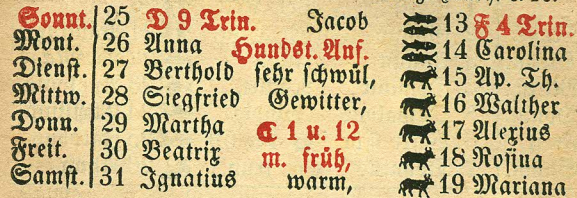 Sonnt. 25 D 9 Trin. Jacob 13 F 4 Trin.
Mont. 26 Anna Hundst. Anf. 14 Carolina
Dienst. 27 Berthold sehr schwül, 15 Ap. Th.
Mittw. 28 Siegfried Gewitter, 16 Walther
Donn. 29 Martha ☾ 1 u. 12 17 Alexius
Freit. 30 Beatrix m. früh, 18 Rosina
Samst. 31 Ignatius warm, 19 Mariana